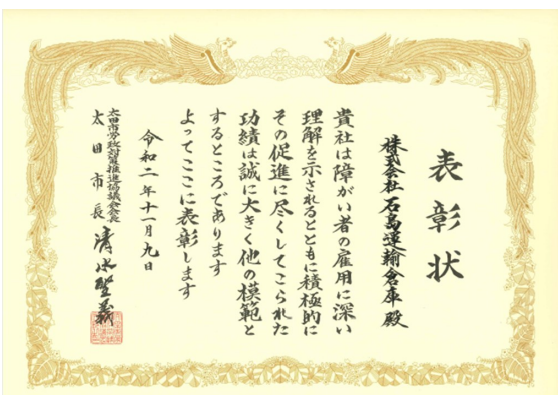 表彰状
株式会社 石島運輸倉庫 殿
貴社は障がい者の雇用に深い
理解を示されるとともに積極的に
その促進に尽くしてこられた
功績は誠に大きく他の模範と
するところであります
よってここに表彰します
令和二年十一月九日
太田市労政対策推進協議会会長
太田市長 清水聖義